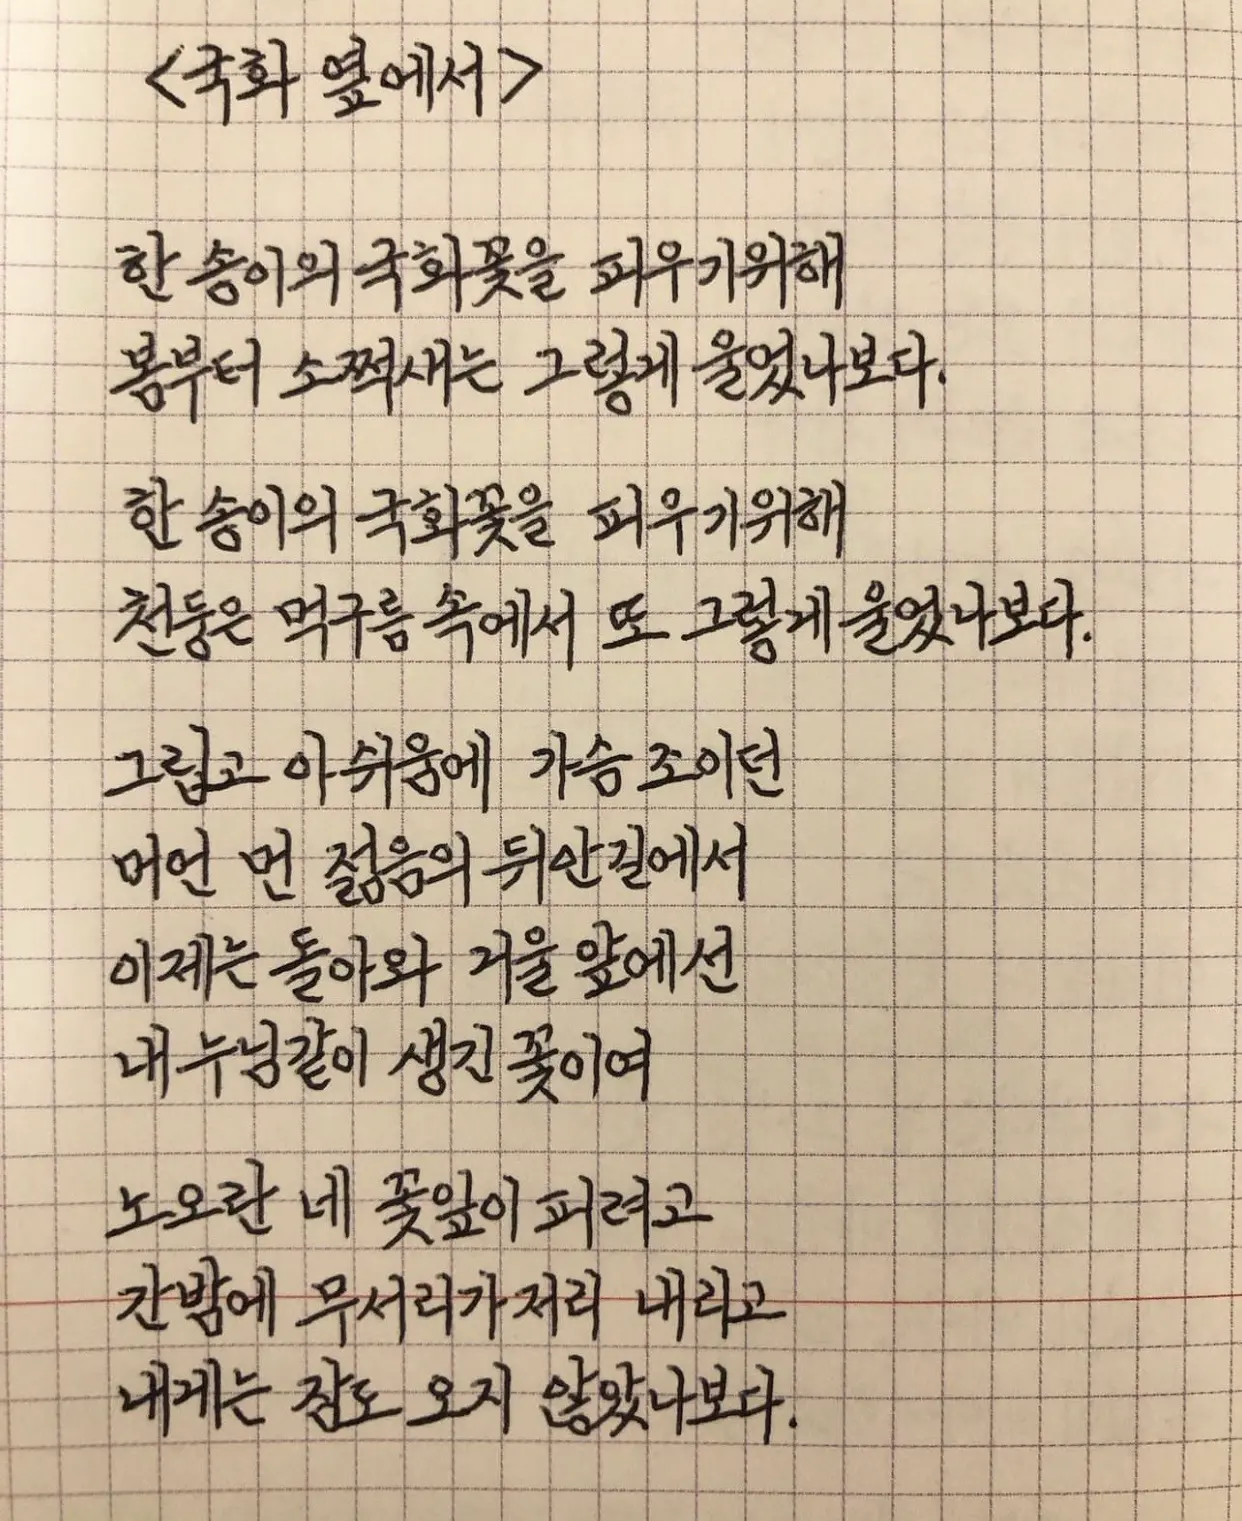 <국화 옆에서>
한 송이의 국화꽃을 피우기위해
봄부터 소쩍새는 그렇게 울었나보다.
한 송이의 국화꽃을 피우기위해
천둥은 먹구름 속에서 또 그렇게 울었나보다.
그립고 아쉬움에 가슴 조이던
머언 먼 젊음의 뒤안길에서
이제는 돌아와 거울 앞에 선
내 누님같이 생긴 꽃이여
노오란 네 꽃잎이 피려고
간밤에 무서리가 저리 내리고
내게는 잠도 오지 않았나보다.